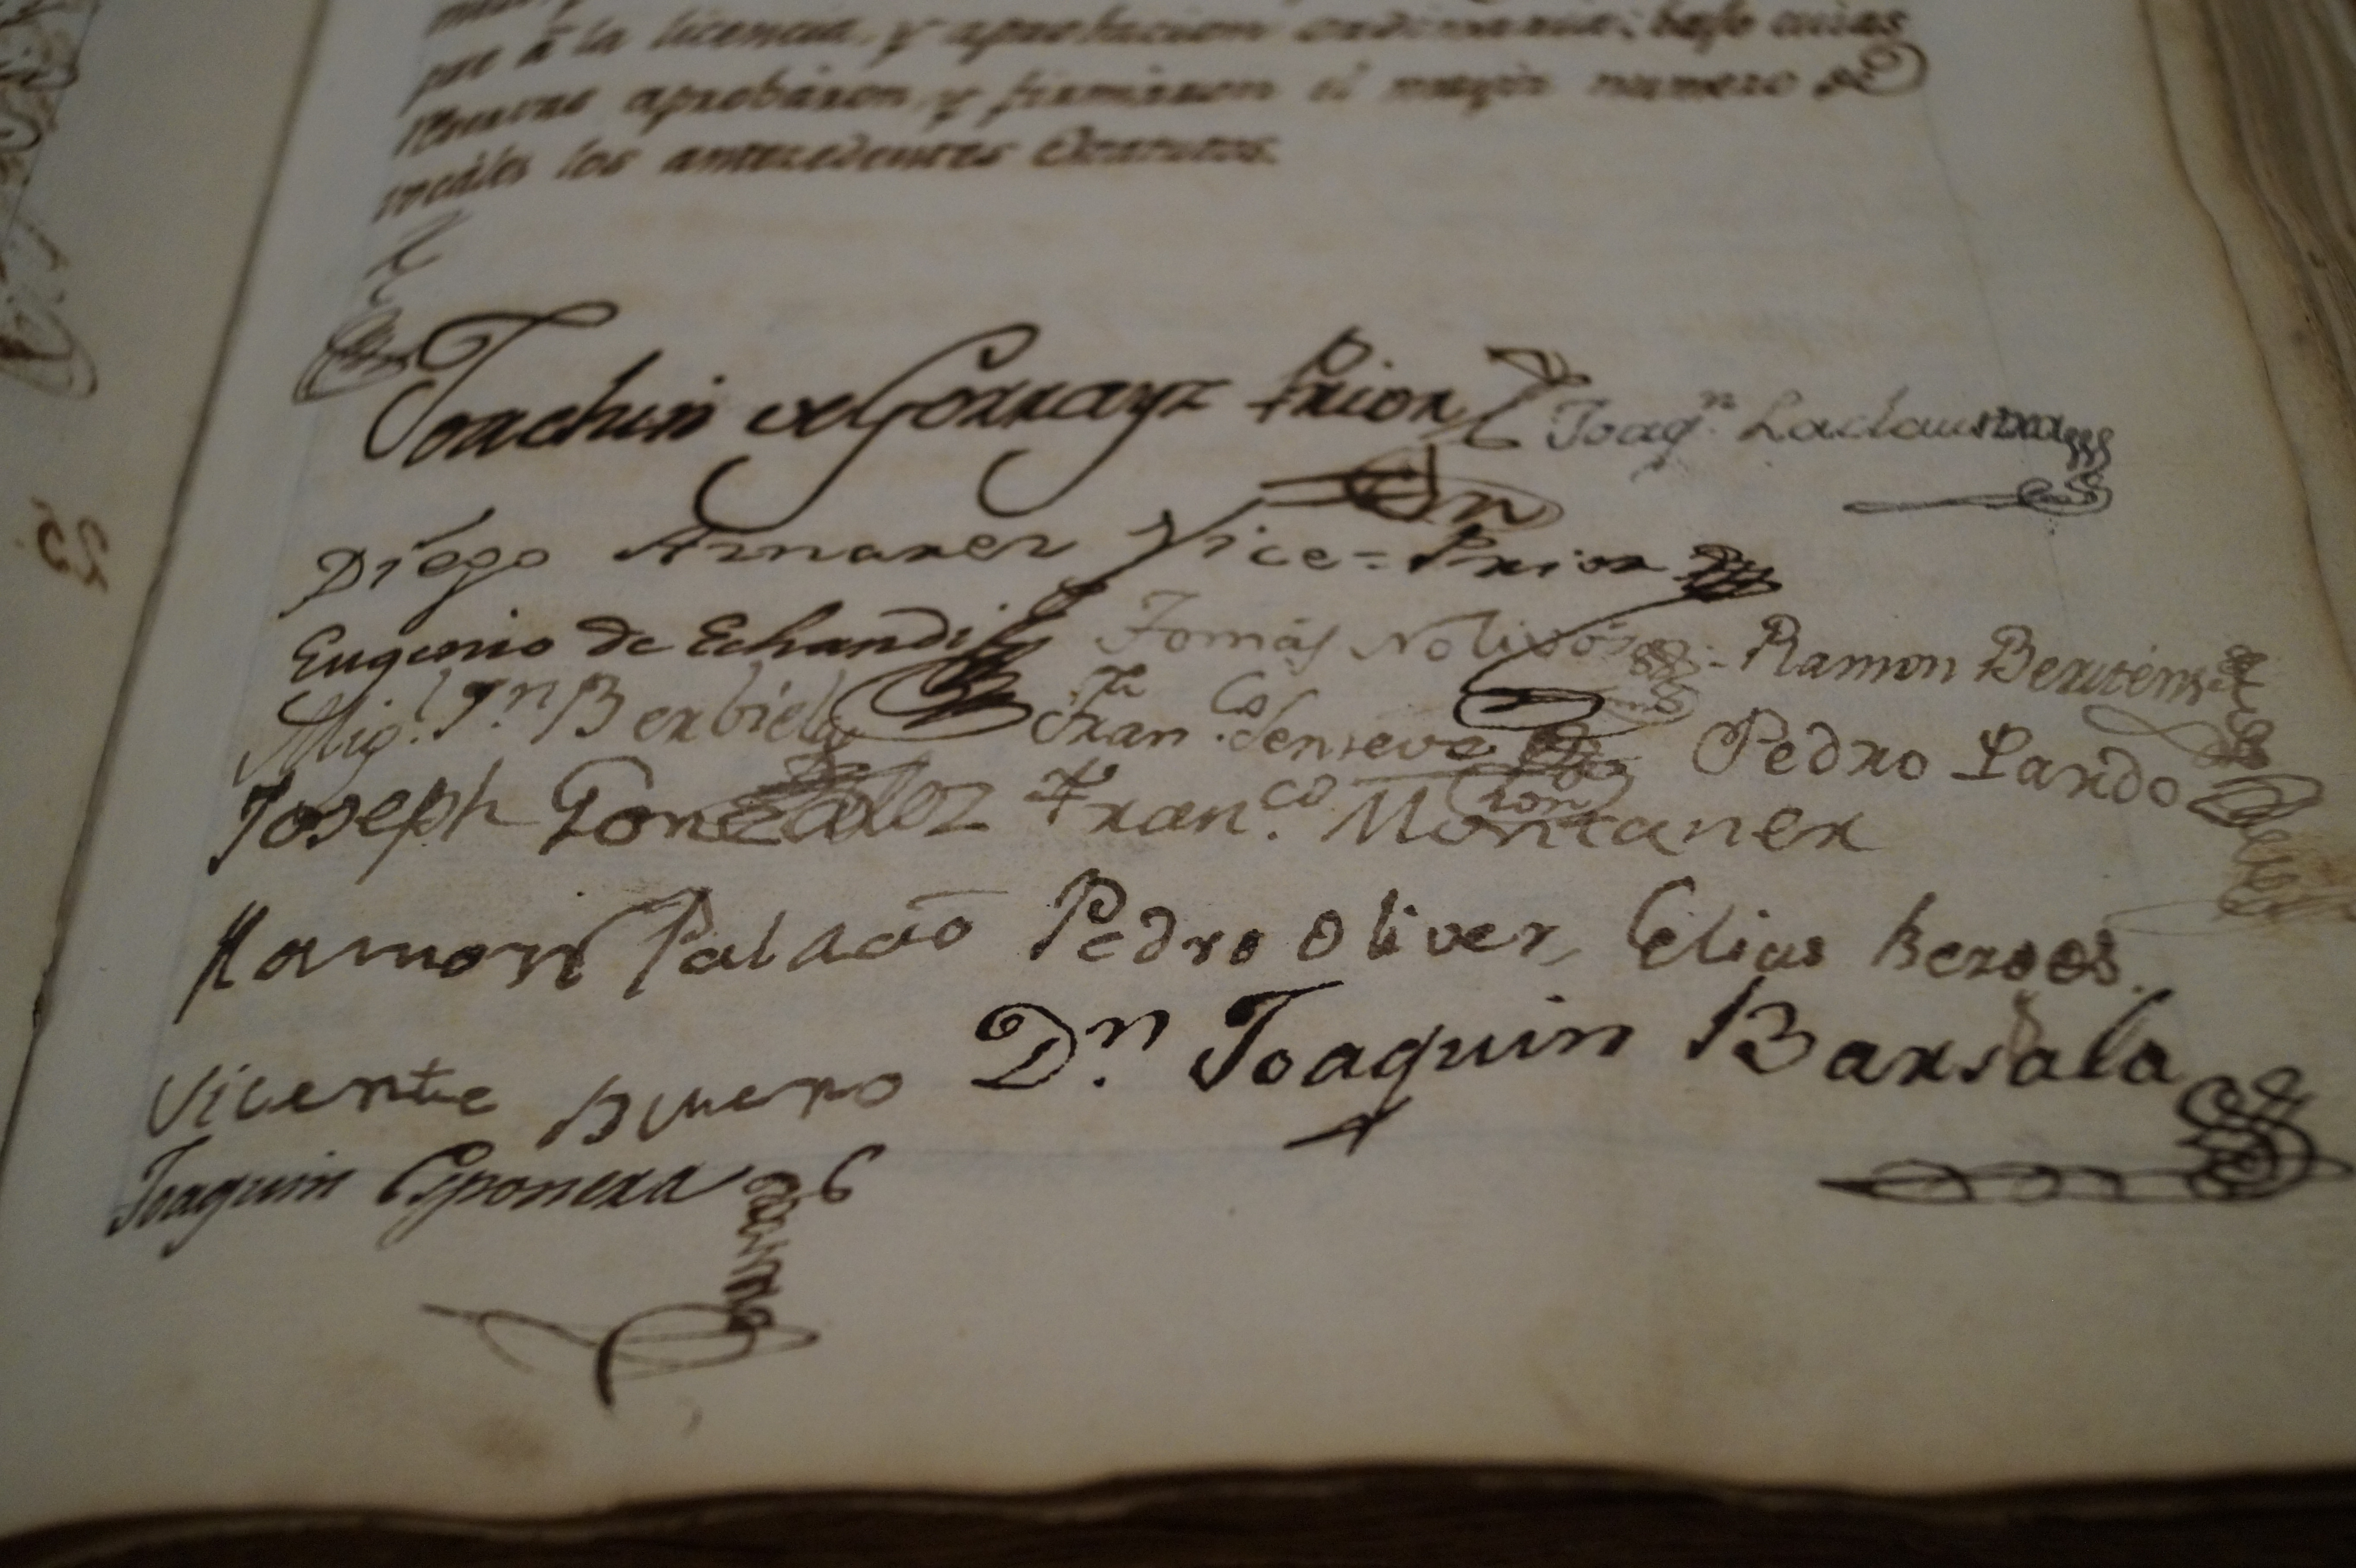 pre á la licencia, y aprobacion ordinaria; bajo cuias
aprobaron, y firmaron el mayor numero de
vocáles los antecedentes Estatutos.
Joachin de Gorrayz Prior Joaq.n Laclaustra
Diego Arnarez Vice=Prior
Eugenio de Echandi Tomás Nolivós Ramon
Mig.l J.n Berbiela Fran.co Senseve Pedro Pardo
Joseph Gonzalez Fran.co Montaner
Ramon Palacio Pedro Oliver, Elias Berges.
Vicente Bueno D.n Joaquin Barsala
Joaquin Esponera